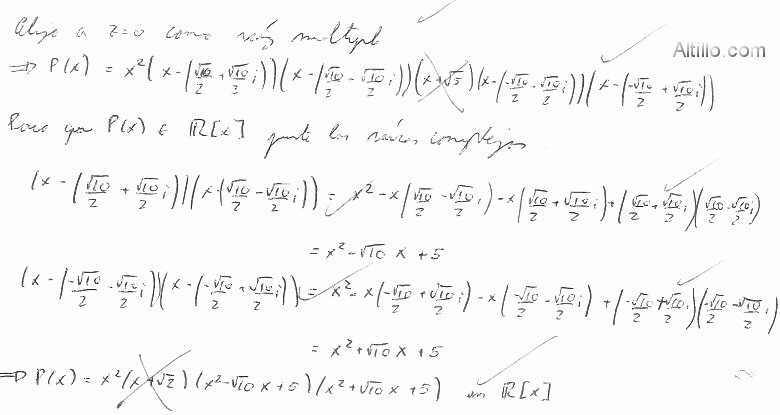 Elijo a z=0 como raíz multipl
Altillo.com
⇒ P(x) = x²(x-(√10/2 + √10/2 i))(x-(√10/2 - √10/2 i))(x+√5)(x-(-√10/2 - √10/2 i))(x-(-√10/2 + √10/2 i))
Para que P(x) ∈ ℝ[x] junte las raíces complejas
(x-(√10/2 + √10/2 i))(x-(√10/2 - √10/2 i)) = x² - x(√10/2 - √10/2 i) - x(√10/2 + √10/2 i) + (√10/2 + √10/2 i)(√10/2 - √10/2 i)
= x² - √10 x + 5
(x-(-√10/2 - √10/2 i))(x-(-√10/2 + √10/2 i)) = x² - x(-√10/2 + √10/2 i) - x(-√10/2 - √10/2 i) + (-√10/2 + √10/2 i)(-√10/2 - √10/2 i)
= x² + √10 x + 5
⇒ P(x) = x²(x+√2)(x² - √10 x + 5)(x² + √10 x + 5) en ℝ[x]